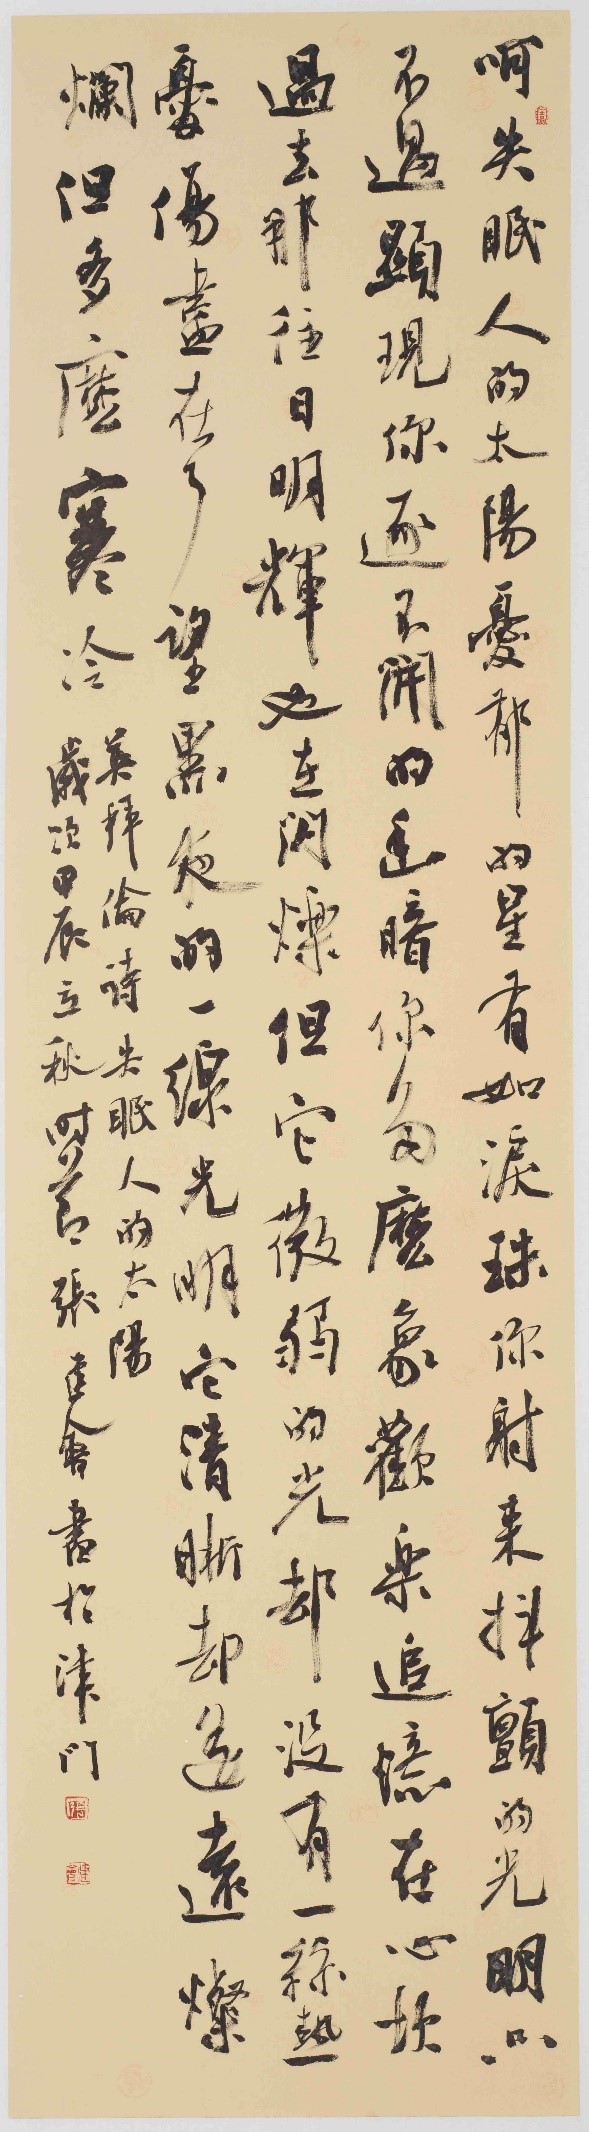 啊失眠人的太陽憂郁的星有如淚珠你射来抖顫的光明只
不過顯現你逐不開的幽暗你多麼象歡樂追憶在心坎
過去那往日明輝也在閃爍但它微弱的光却没有一絲熱
憂傷盡在了望黑夜的一線光明它清晰却遥遠燦
爛但多麼寒冷
英拜倫詩失眠人的太陽
歲次甲辰立秋時節張建會書於津門